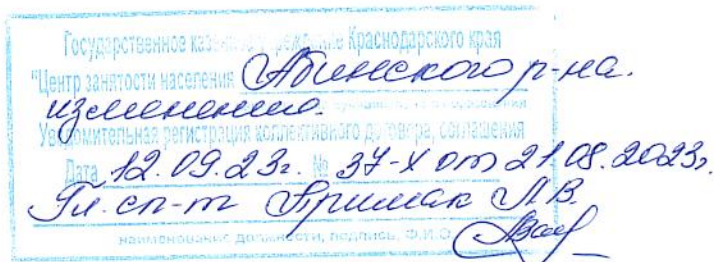 Государственное казенное учреждение Краснодарского края
"Центр занятости населения Абинского р-на.
изменению.
Уведомительная регистрация коллективного договора, соглашения
Дата 12.09.23г. № 37-х от 21.08.2023г.
Гл. сп-т Примак Л.В.
наименование должности, подпись, Ф.И.О.